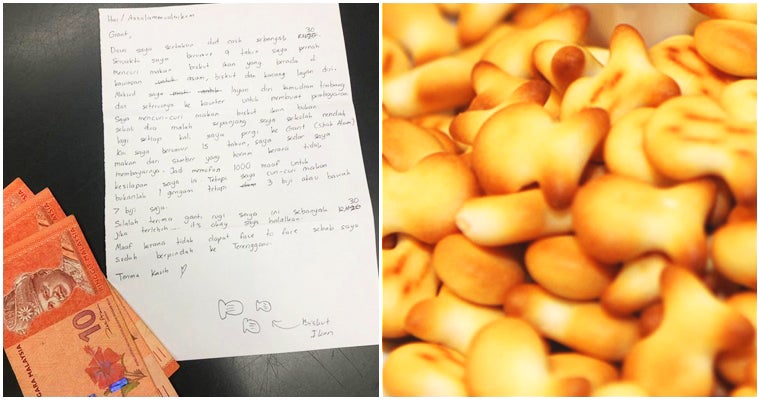 Hai / Assalammualaikum
Giant,
Disini saya sertakan duit cash sebanyak RM30
Semasa saya berumur 9 tahun saya pernah
mencuri makan biskut ikan yang berada di
kawasan asam, biskut dan kacang layan diri.
Maksud saya layan diri kemudian timbang
dan seterusnya ke kaunter untuk membuat pembayaran
Saya mencuri-curi makan biskut ikan bukan
sekali dua malah sepanjang saya sekolah rendah
lagi setiap kali saya pergi ke Giant (Shah Alam)
Kini saya berumur 15 tahun, saya sedar saya
makan dari sumber yang haram kerana tidak
membayarnya. Jadi memohon 1000 maaf untuk
kesilapan saya ini Tetapi saya curi-curi makan
bukanlah 1 gengam tetapi 3 biji atau bawah
7 biji saja.
Silalah terima ganti rugi saya ini sebanyak RM30
jika terlebih.... it's okay saya halalkan.
Maaf kerana tidak dapat face to face sebab saya
sudah berpindah ke Terengganu.
Terima Kasih
Biskut
Ikan
10
GARA MALAYSIA